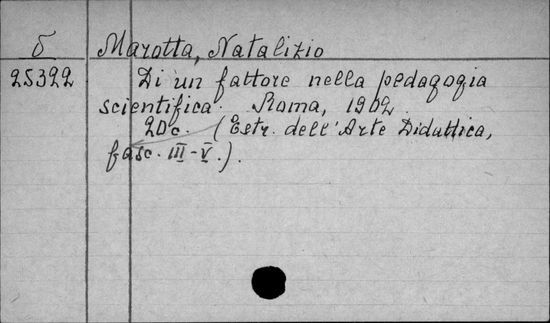 δ Marotta, Natalizio
25322 Di un fattore nella pedagogia
scientifica. Roma, 1902.
20c. (Estr. dell'Arte Didattica,
fasc. III-V.).